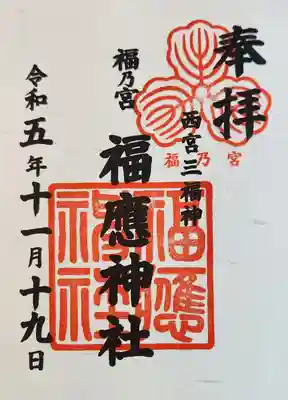 奉拝
西宮三福神
福乃宮
福乃宮
福應神社
福應神社
令和五年十一月十九日